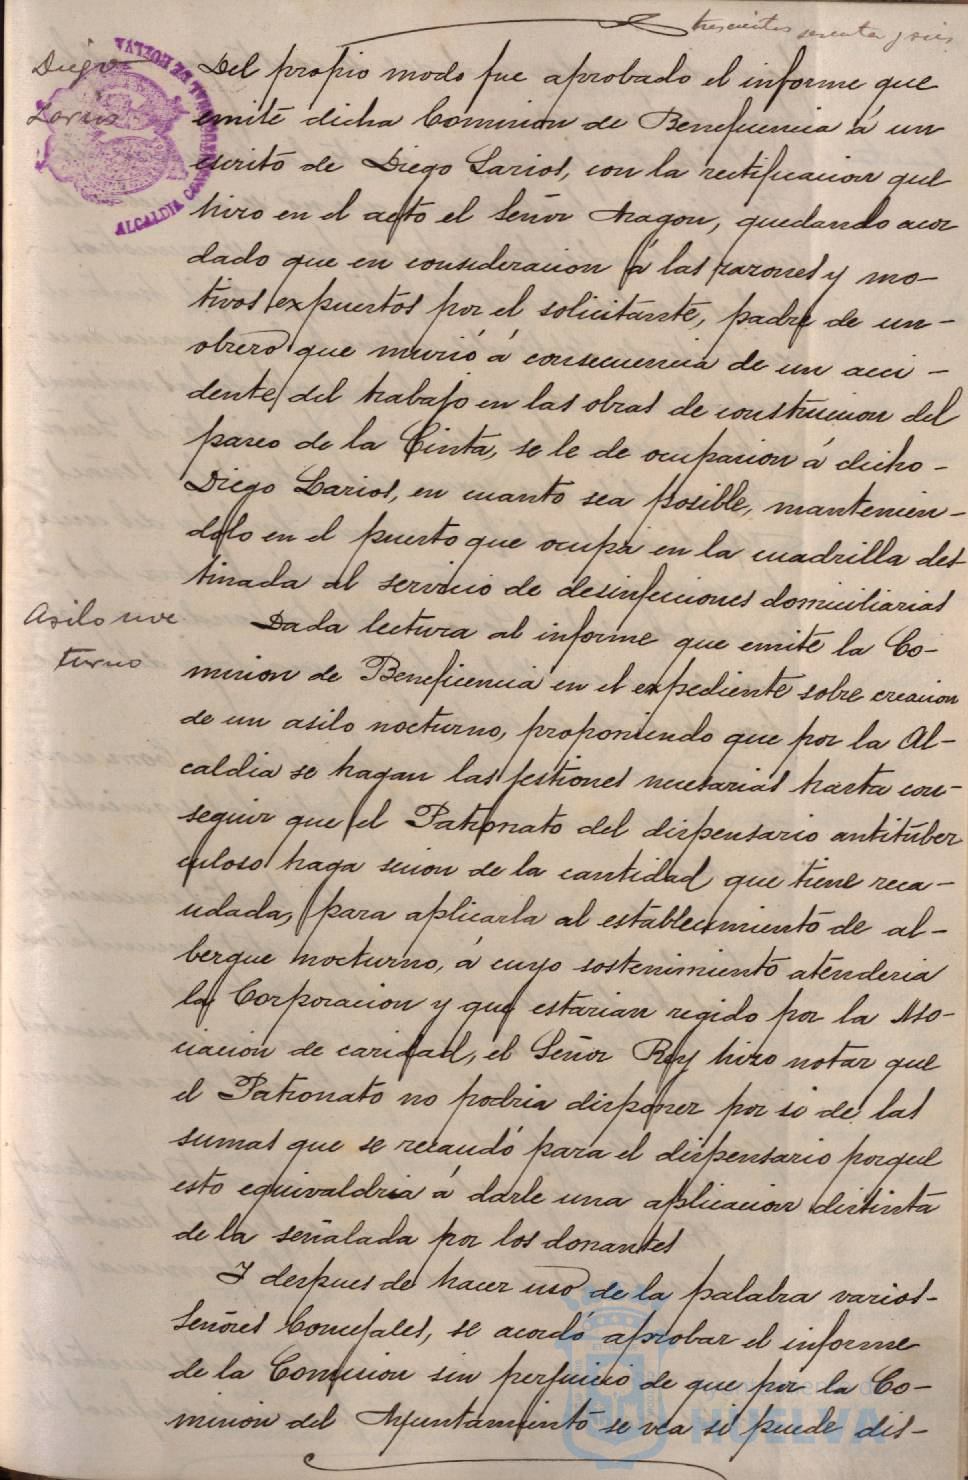 trescientos sesenta y seis
Diego
Larios
ALCALDIA CONSTITUCIONAL DE HUELVA
Del propio modo fue aprobado el informe que
emite dicha Comision de Beneficencia á un
escrito de Diego Larios, con la rectificacion que
hizo en el acto el Señor Aragon, quedando acor
dado que en consideracion á las razones y mo-
tivos expuestos por el solicitante, padre de un-
obrero que murió á consecuencia de un acci-
dente del trabajo en las obras de construccion del
paseo de la Cinta, se le de ocupacion á dicho-
Diego Larios, en cuanto sea posible, mantenien-
dolo en el puesto que ocupa en la cuadrilla des
tinada al servicio de desinfecciones domiciliarias
Asilo noc
turno
Dada lectura al informe que emite la Co-
mision de Beneficencia en el expediente sobre creacion
de un asilo nocturno, proponiendo que por la Al-
caldia se hagan las gestiones necesarias hasta con-
seguir que el Patronato del dispensario antituber
culoso haga cesion de la cantidad que tiene reca-
udada, para aplicarla al establecimiento de al-
bergue nocturno, á cuyo sostenimiento atenderia
la Corporacion y que estarian regido por la Aso-
ciacion de caridad, el Señor Rey hizo notar que
el Patronato no podria disponer por si de las
sumas que se recaudó para el dispensario porque
esto equivaldria á darle una aplicacion distinta
de la señalada por los donantes
Y despues de hacer uso de la palabra varios-
Señores Concejales, se acordó aprobar el informe
de la Comision sin perjuicio de que por la Co-
mision del Ayuntamiento se vea si puede dis-
Ayuntamiento de
HUELVA